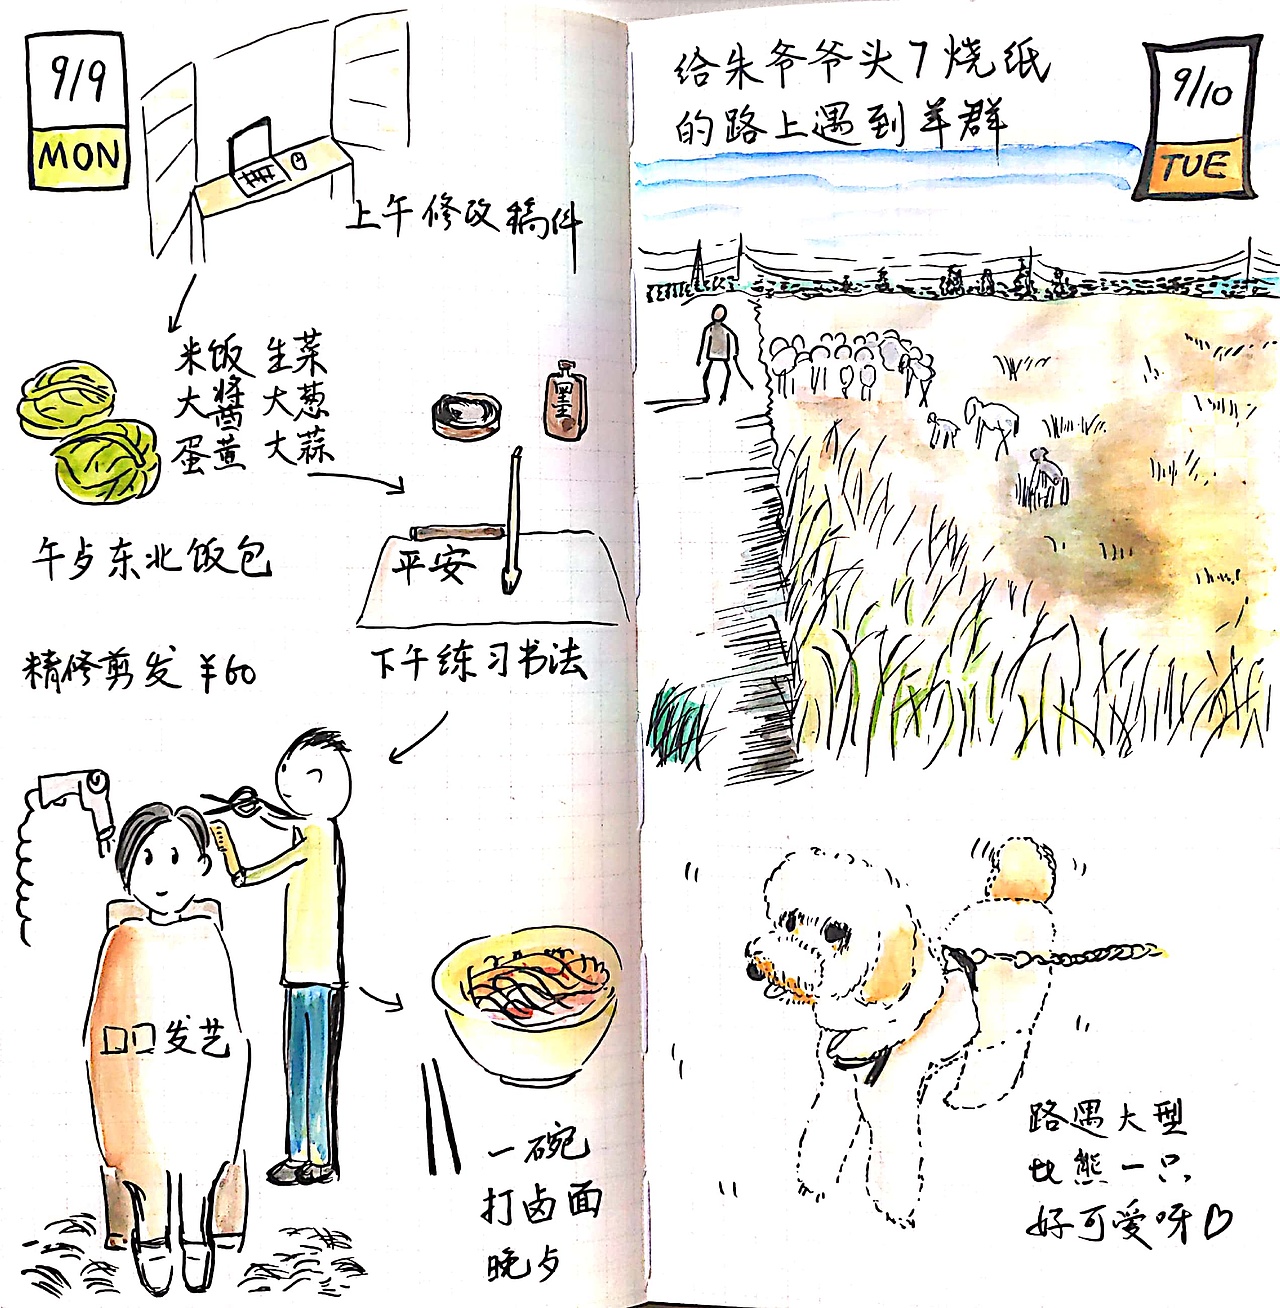 9/9
MON
上午修改稿件
米饭 生菜
大酱 大葱
蛋黄 大蒜
午歺东北饭包
墨
平安
下午练习书法
精修剪发 ¥60
口口发艺
一碗
打卤面
晚歺
给朱爷爷头7烧纸
的路上遇到羊群
9/10
TUE
路遇大型
比熊一只
好可爱呀♡